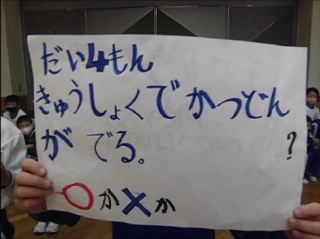 だい4もん
きゅうしょくでかつどん
がでる。?
○か×か